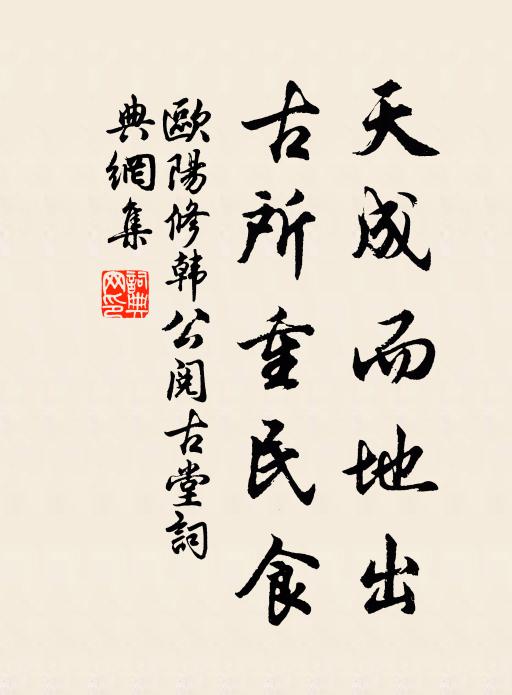 天成而地出
古所重民食
歐陽修韩公阅古堂詞
典網集
詞典網印